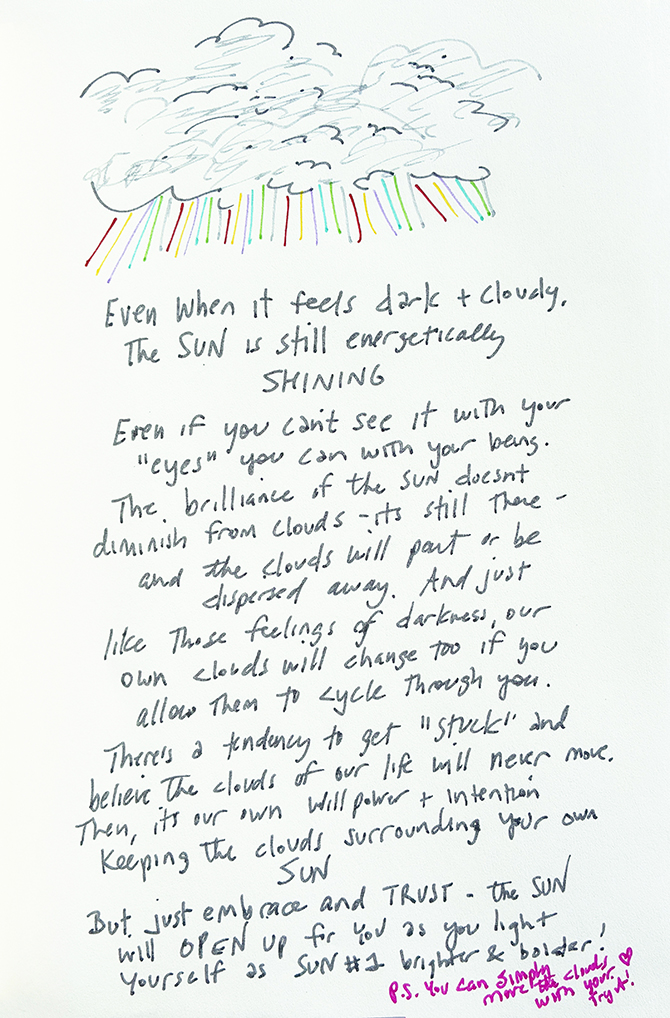 Even when it feels dark + cloudy.
The SUN is still energetically
SHINING
Even if you can't see it with your
"eyes" you can with your being.
The brilliance of the SUN doesnt
diminish from clouds - its still there -
and the clouds will part or be
dispersed away. And just
like those feelings of darkness, our
own clouds will change too if you
allow them to cycle through you.
There's a tendency to get "stuck" and
believe the clouds of our life will never move.
Then, its our own willpower + intention
keeping the clouds surrounding your own
SUN
But just embrace and TRUST - the SUN
will OPEN UP for you as you light
yourself as SUN #1 brighter & bolder!
P.S. You can simply
move the clouds
with your
try it!